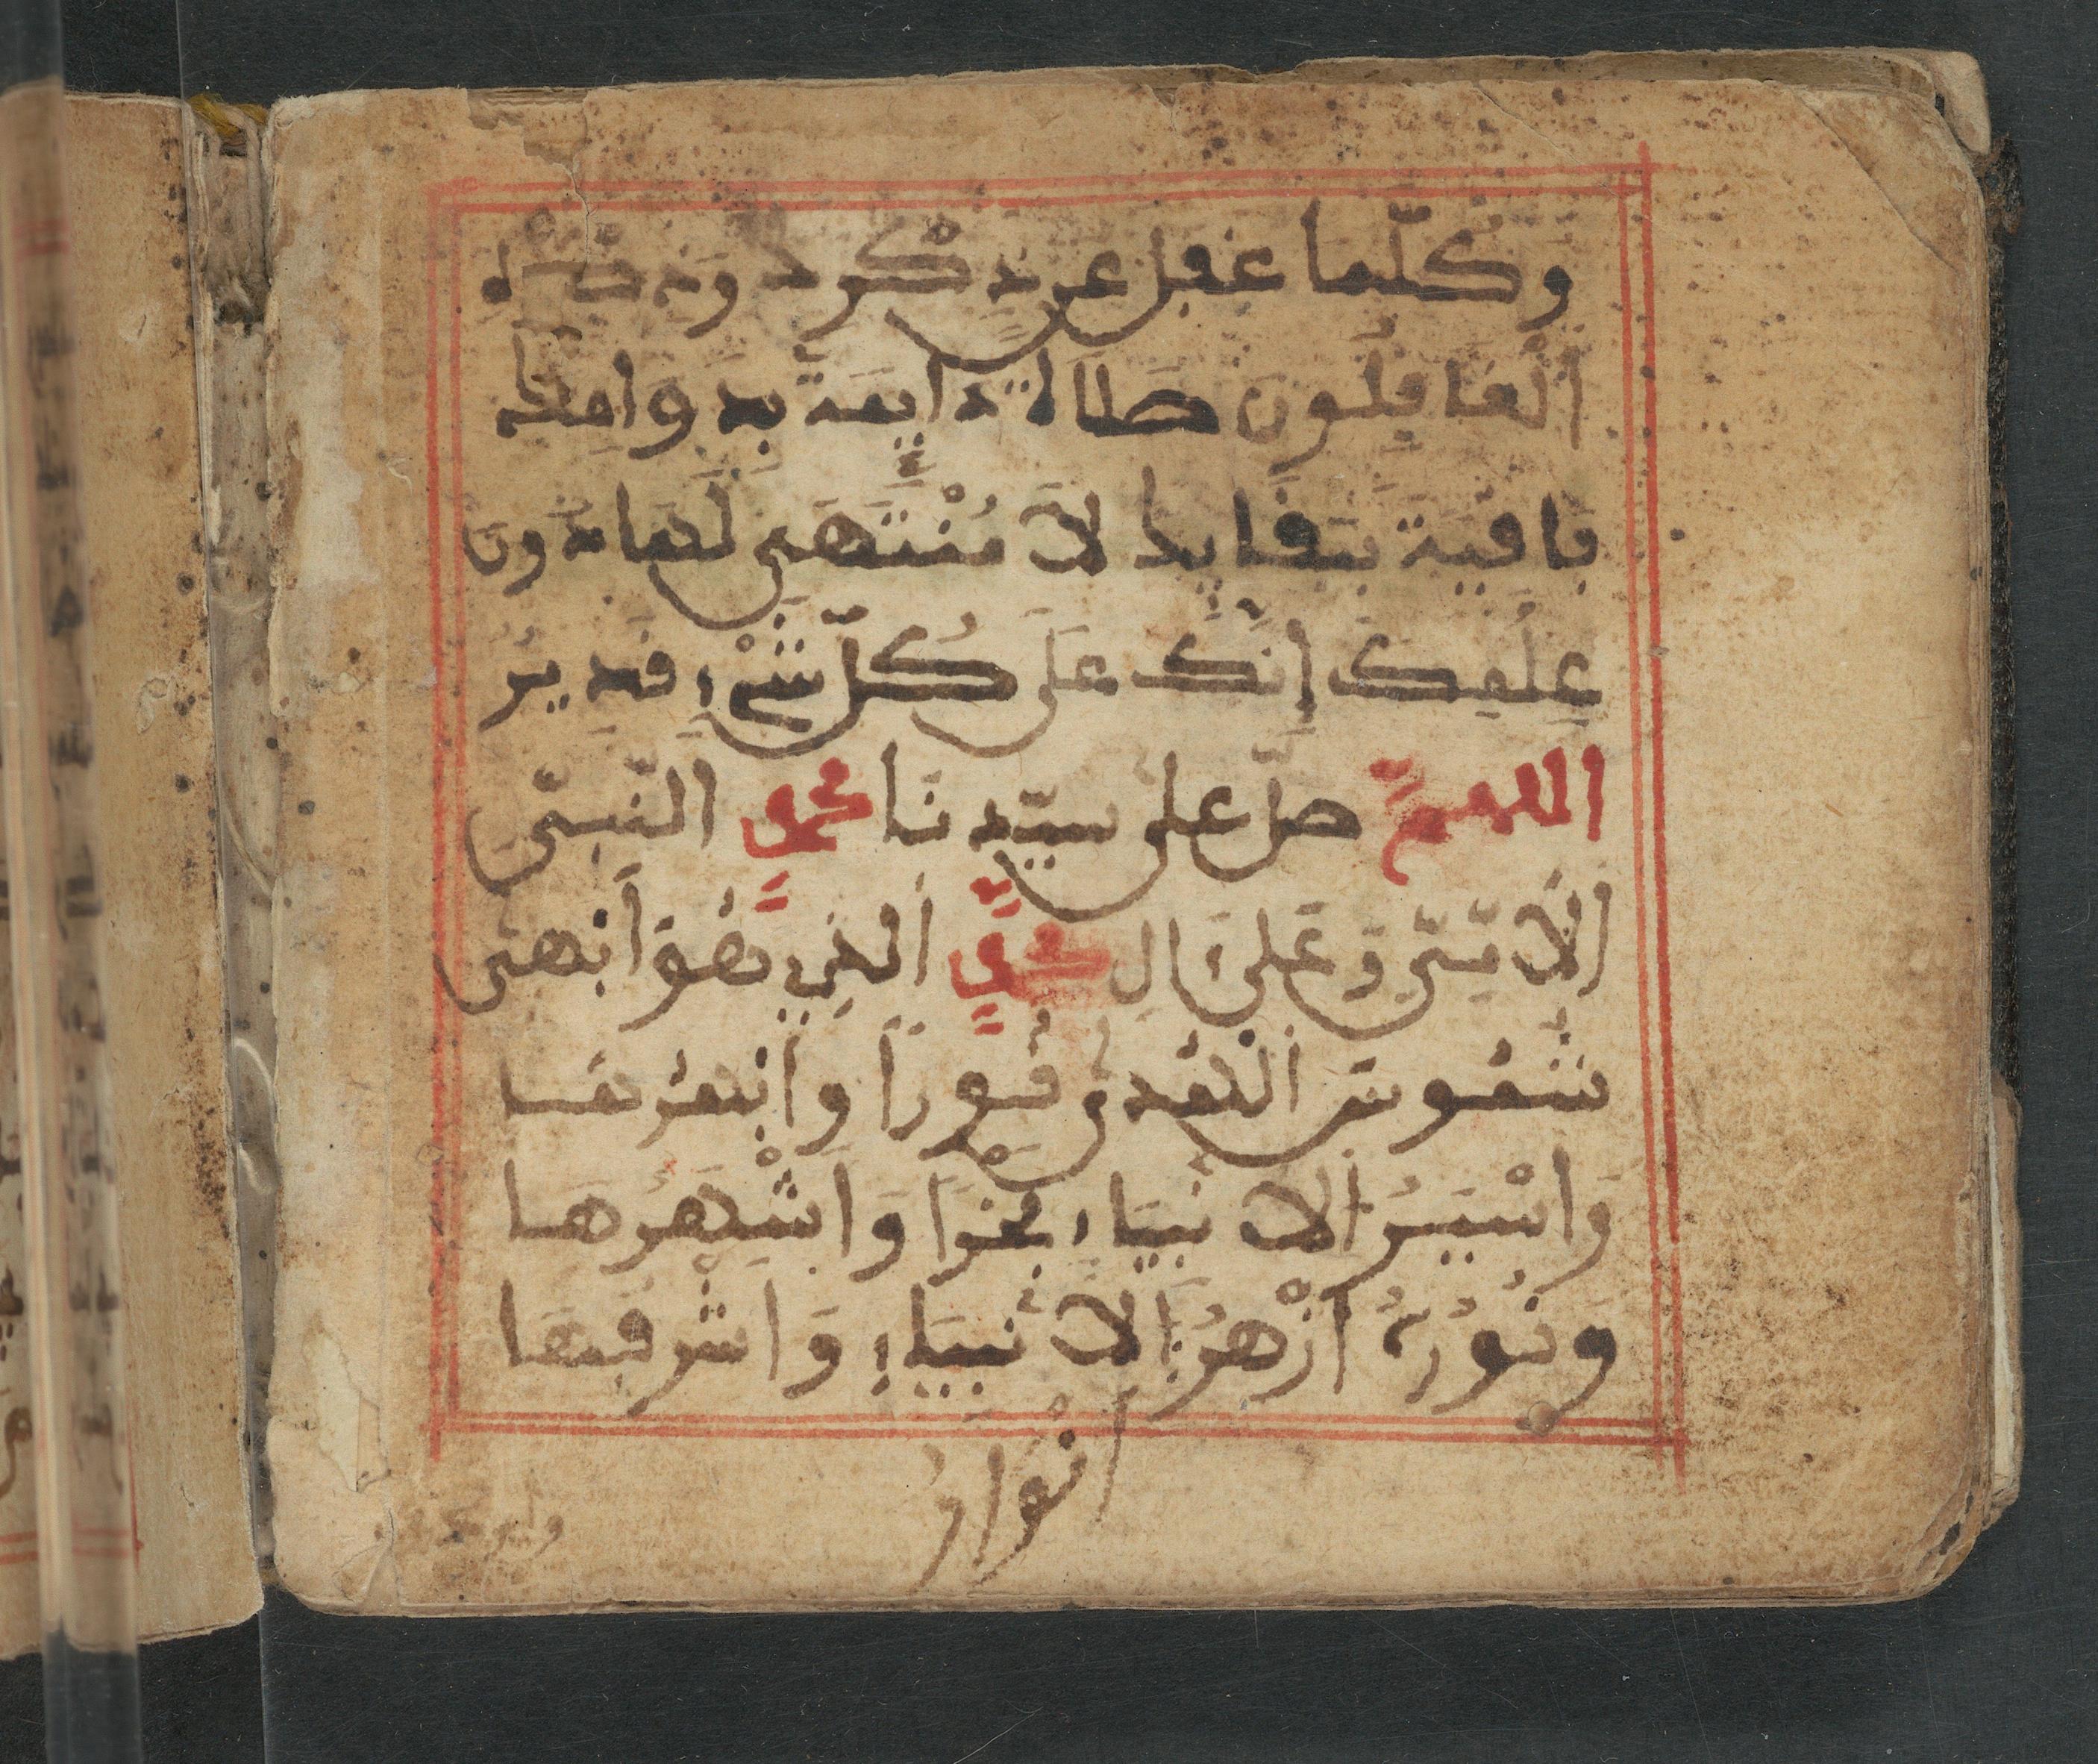 وكلّما غفل عن ذكرك وذكره
الغافلون صلاة دايمة بدوامك
باقية ببقايك لا منتهى لها دون
علمك إنك على كلّ شيء قدير
اللهمّ صلّ على سيّدنا محمد النّبيّ
الأمّيّ وعلى ءال محمد الذي هو أبهى
شموس الهدى نورا وأبهرها
وَأسْيَرُ الانبياء فخرا وَأشْهَرُهَا
ونُورُهُ أزْهرُ الانبياء وَأشرقها
أنوار